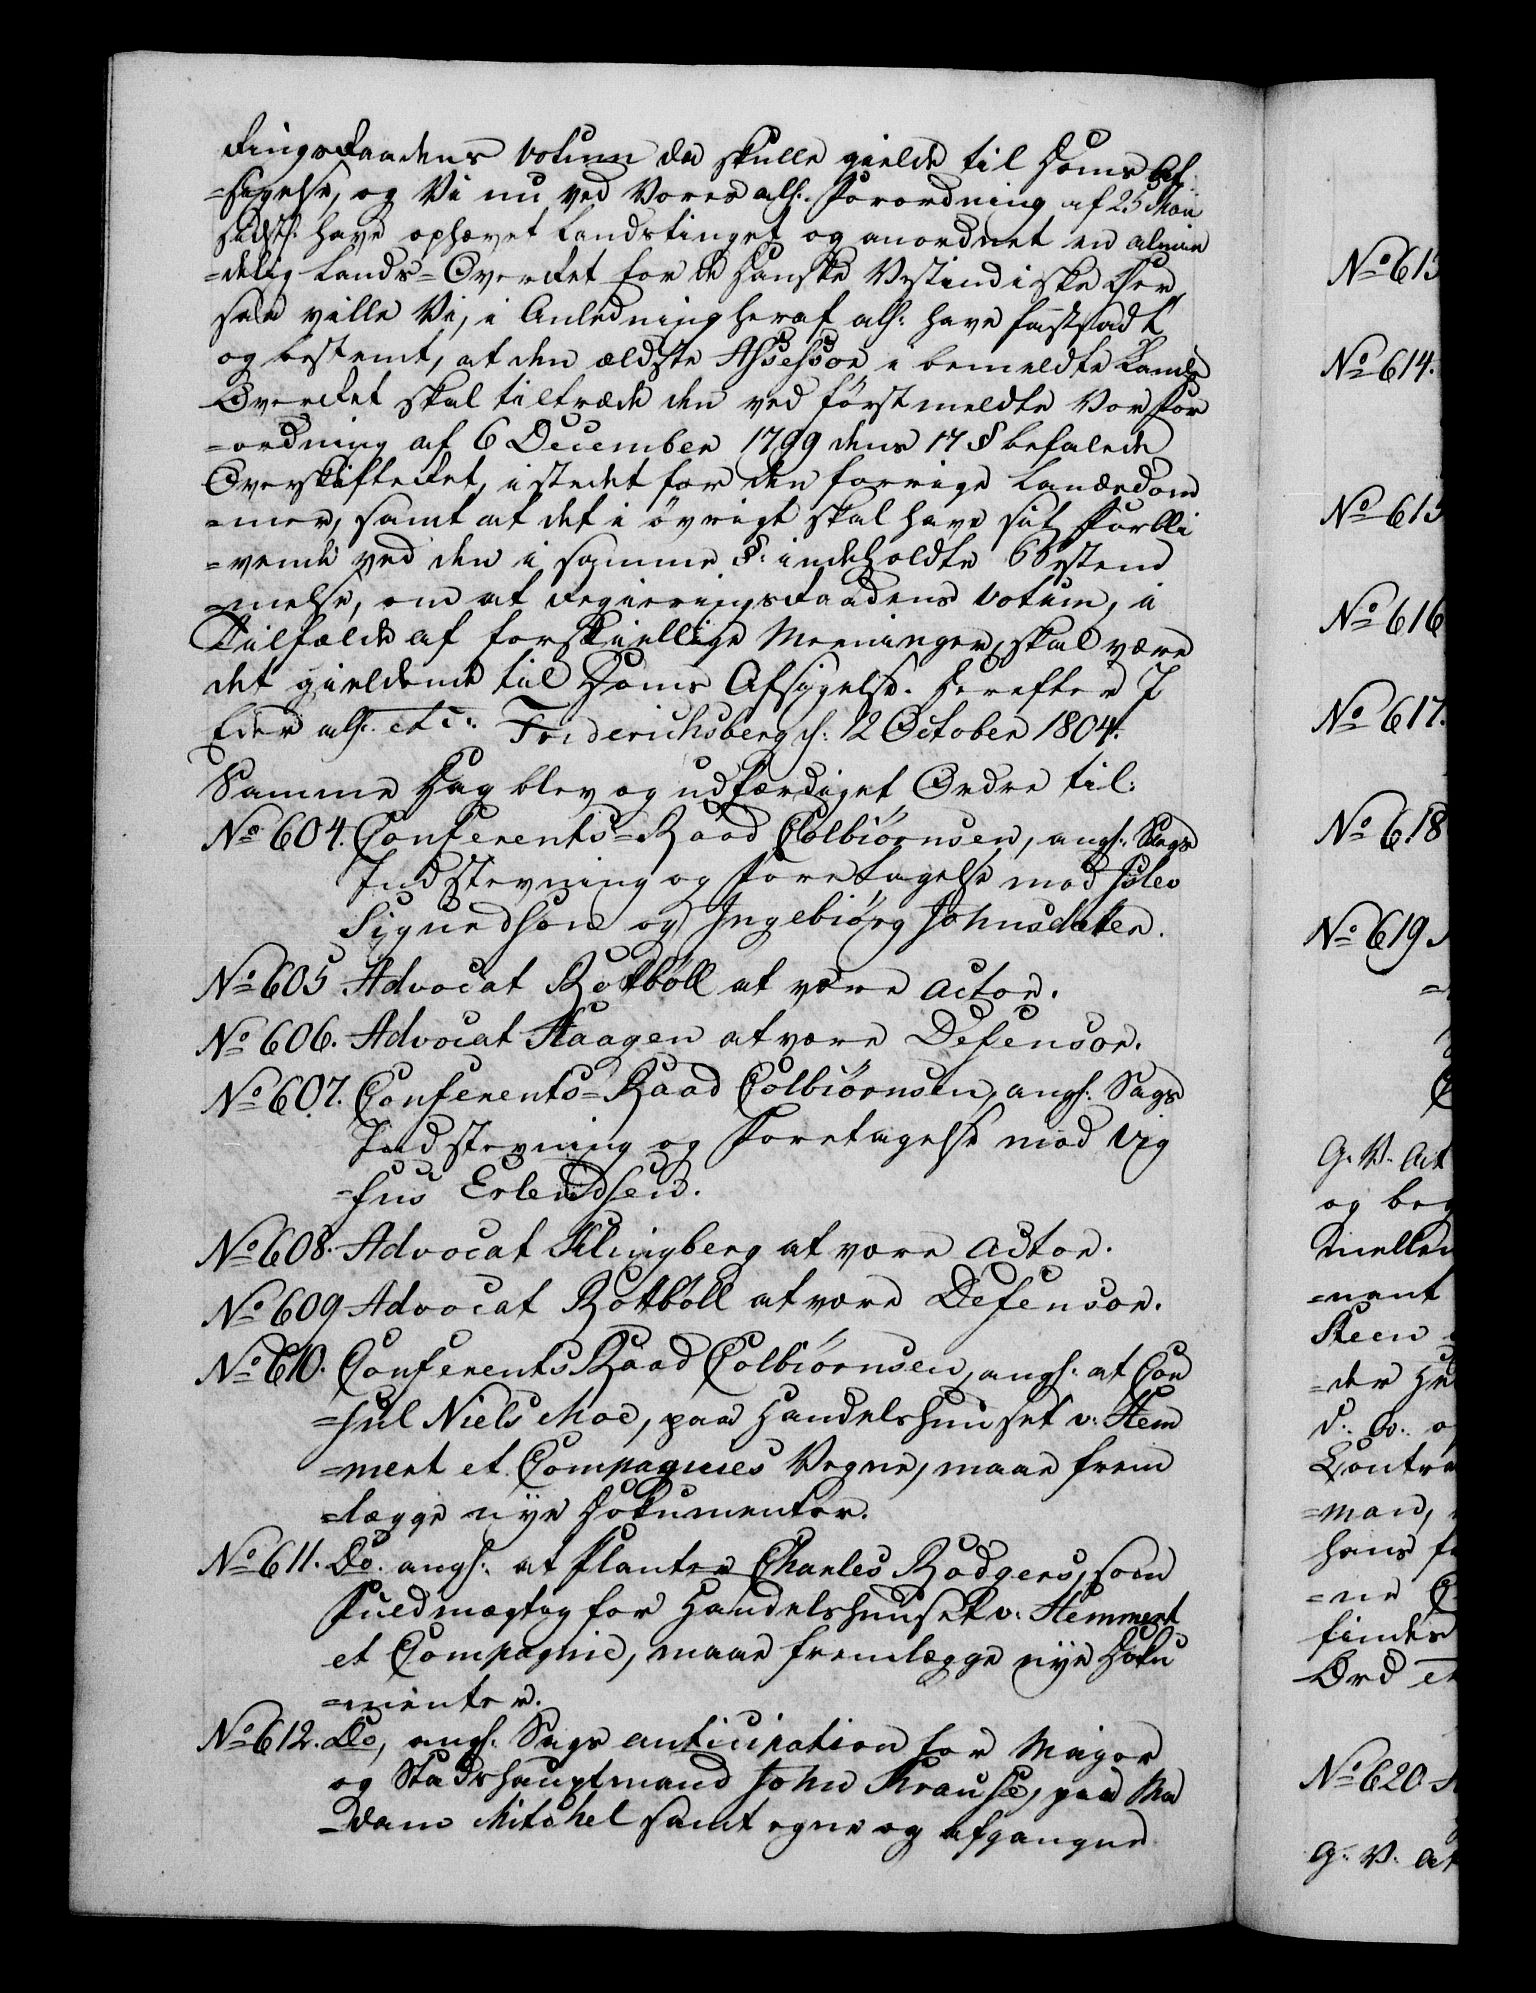 ringsRaadens votum da skulle gielde til Doms Af:
=sigelse, og Vi nu ved Vores alh: Forordning af 25 Maii
sidstl: have ophævet Landstinget og anordnet en almin
=delig Lands=Overret for de Danske Vestindiske Öer,
saa ville Vi, i Anledning heraf alh: have fastsadt
og bestemt, at den ældste Assessor i bemeldte Lands
Overret skal tiltræde den ved förstmeldte Vor For
=ordning af 6 December 1799 dens 17 § befalede
Overskifteret, istedet for den forrige Landsdom
=mer, samt at det i övrigt skal have sit Forbli
=vende ved den i samme §: indeholdte Bestem
=melse, om at RegieringsRaadens Votum, i
Tilfælde af forskiellige Meeninger, skal være
det gieldende til Doms Afsigelse. Herefter I
Eder alh: etc: Friderichsberg d: 12 October 1804.
Samme Dag blev og udfærdiget Ordre til:
No 604. Conferents=Raad Colbiörnsen, angl: Sags
Indstevning og Foretagelse mod Islev
Sigurdson og Ingebiörg Johnsdatter.
No 605 Advocat Rottböll at være Actor.
No 606. Advocat Haagen at være Defensor.
No 607. Conferents=Raad Colbiörnsen, angl: Sags
Indstevning og Foretagelse mod Vig
=fus Erlendsen.
No 608. Advocat Klingberg at være Actor.
No 609 Advocat Rottböll at være Defensor.
No 610. ConferentsRaad Colbiörnsen, angl: at Con
=sul Niels Moe, paa Handelshuuset v: Hem
=mert et Compagnies Vegne, maae frem
=lægge nye Dokumenter.
No 611. Do. angl: at Planter Charles Rodgers, som
Fuldmægtig for Handelshuuset v: Hemmert
et Compagnie, maae fremlægge nye Doku
=menter.
No 612. Do, angl: Sags anticipation for Major
og Stadshauptmand John Krause, paa Ma
=dame Mitchel samt egne og afgangne
No 613
No 614.
No 615
No 616
No 617.
No 618
No 619.
G. V. At
og beg
mellem
=nent
Steen
=der
Contra
=man,
hans
=ne
findes
Ord
No 620.
G. V. at